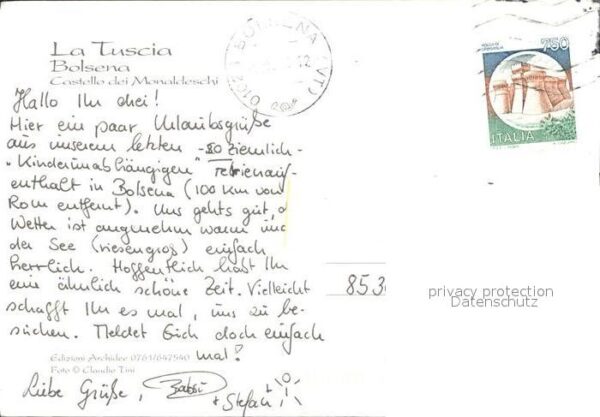 La Tuscia
Bolsena
Castello dei Monaldeschi
Hallo Ihr drei!
Hier ein paar Urlaubsgrüße
aus unserem letzten - so ziemlich -
"Kinderunabhängigen" Ferienauf-
enthalt in Bolsena (100 Km von
Rom entfernt). Uns gehts gut, d
Wetter ist angenehm warm und
der See (riesengroß) einfach
herrlich. Hoffentlich habt Ihr
eine ähnlich schöne Zeit. Vielleicht
schafft Ihr es mal, uns zu be-
suchen. Meldet Euch doch einfach
mal!
Edizioni Archidee 0761/647540
Foto © Claudio Tini
Liebe Grüße, Babsi
+ Stefan
BOLSENA (VT)
01023
750
ITALIA
853
privacy protection
Datenschutz